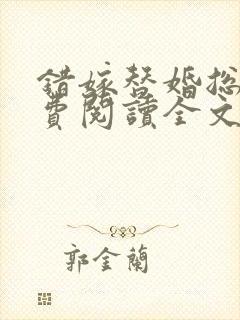 錯嫁替婚總
費閱讀全文
郭金蘭